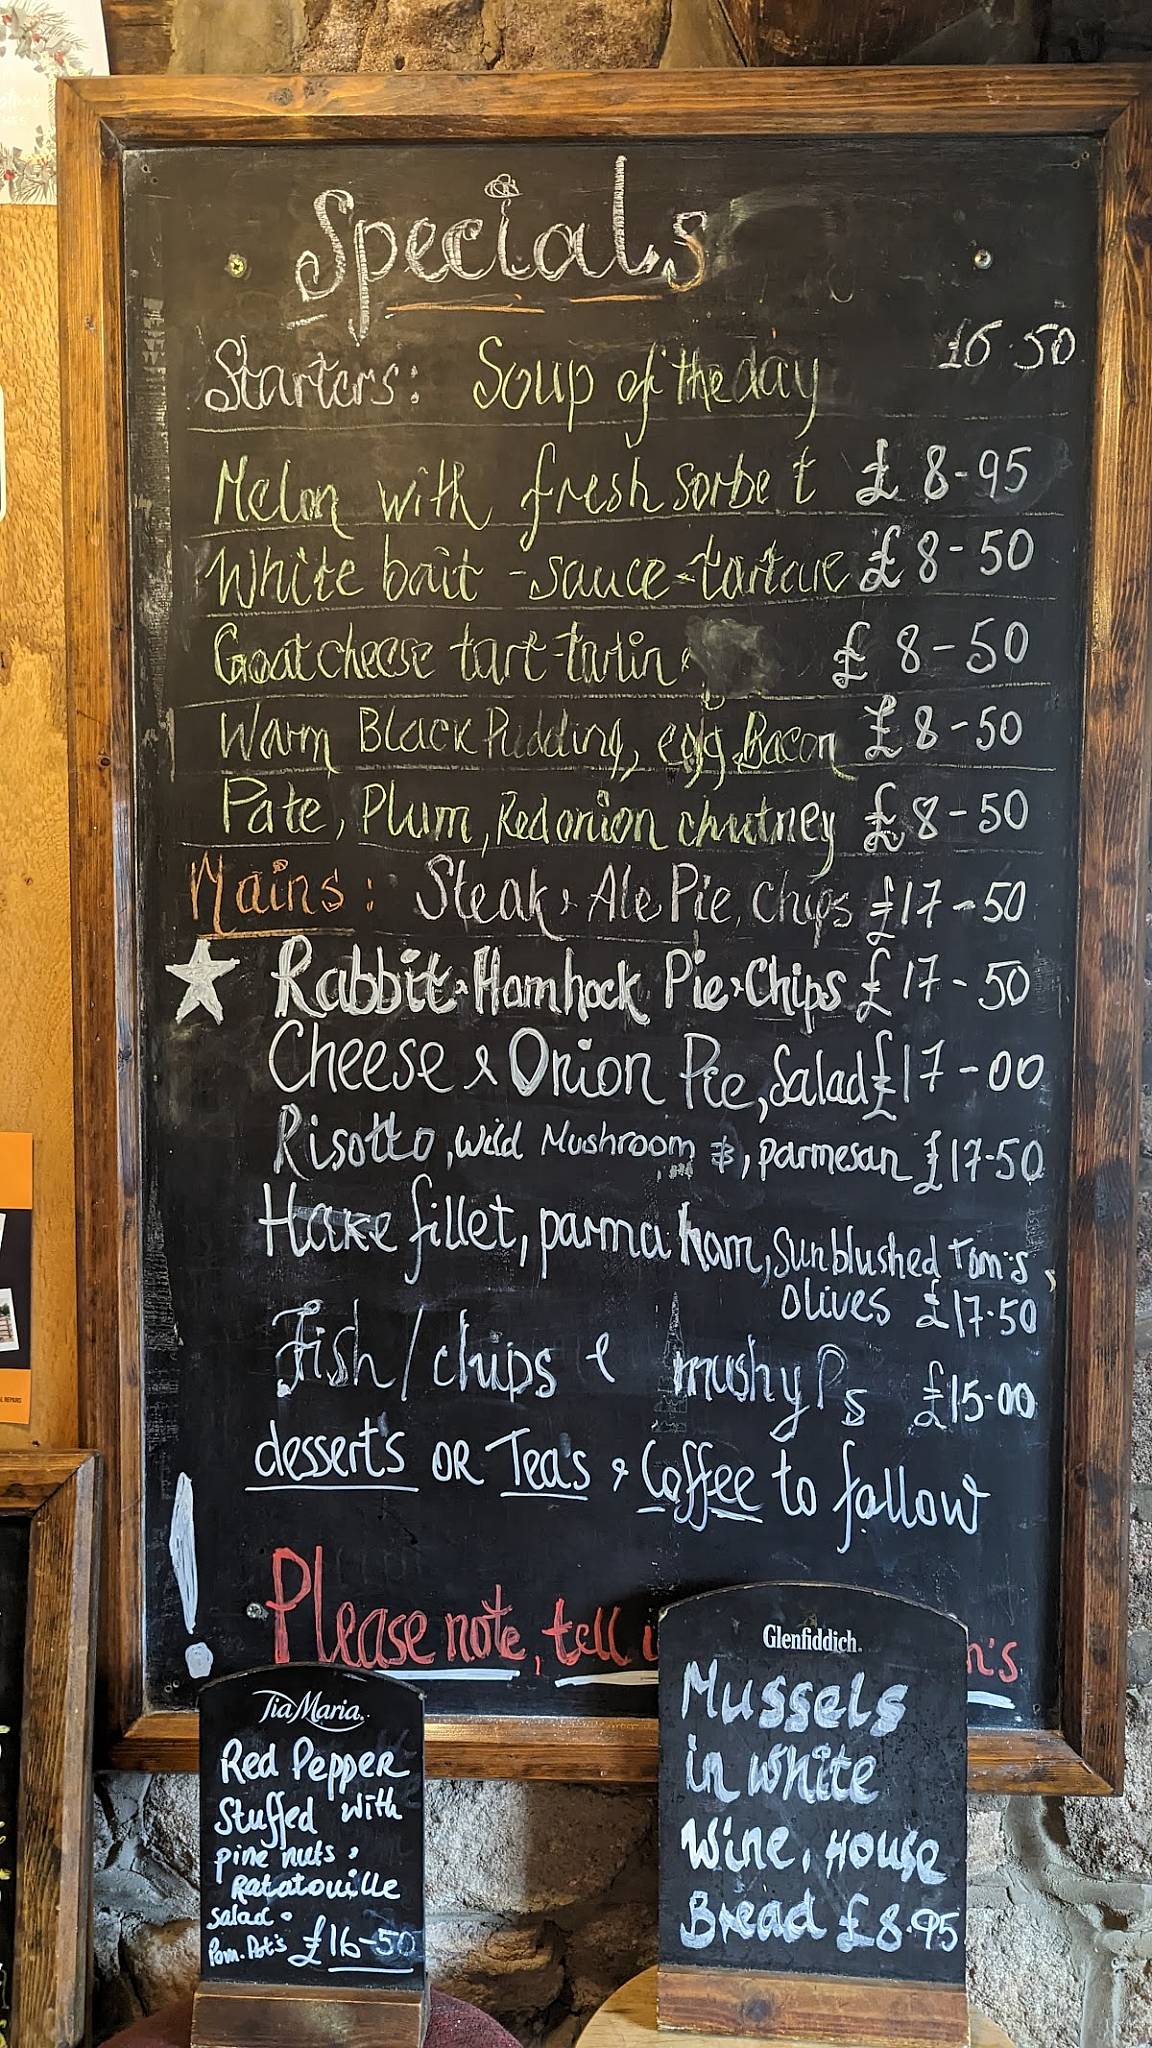 Specials
Starters: Soup of the day £6.50
Melon with fresh sorbet £8-95
White bait - sauce-tartare £8-50
Goat cheese tart-tatin £8-50
Warm Black Pudding, egg, Bacon £8-50
Pate, Plum, Red onion chutney £8-50
Mains: Steak & Ale Pie, Chips £17-50
Rabbit & Hamhock Pie & Chips £17-50
Cheese & Onion Pie, Salad £17-00
Risotto, wild Mushroom, parmesan £17.50
Hake fillet, parma ham, Sunblushed Tom's,
Olives £17.50
Fish/chips & mushy Ps £15.00
desserts OR Tea's & Coffee to follow
! Please note, tell
Tia Maria
Red Pepper
Stuffed with
pine nuts &
Ratatouille
salad.
Pom.Pot's £16-50
Glenfiddich
Mussels
in white
Wine, House
Bread £8.95